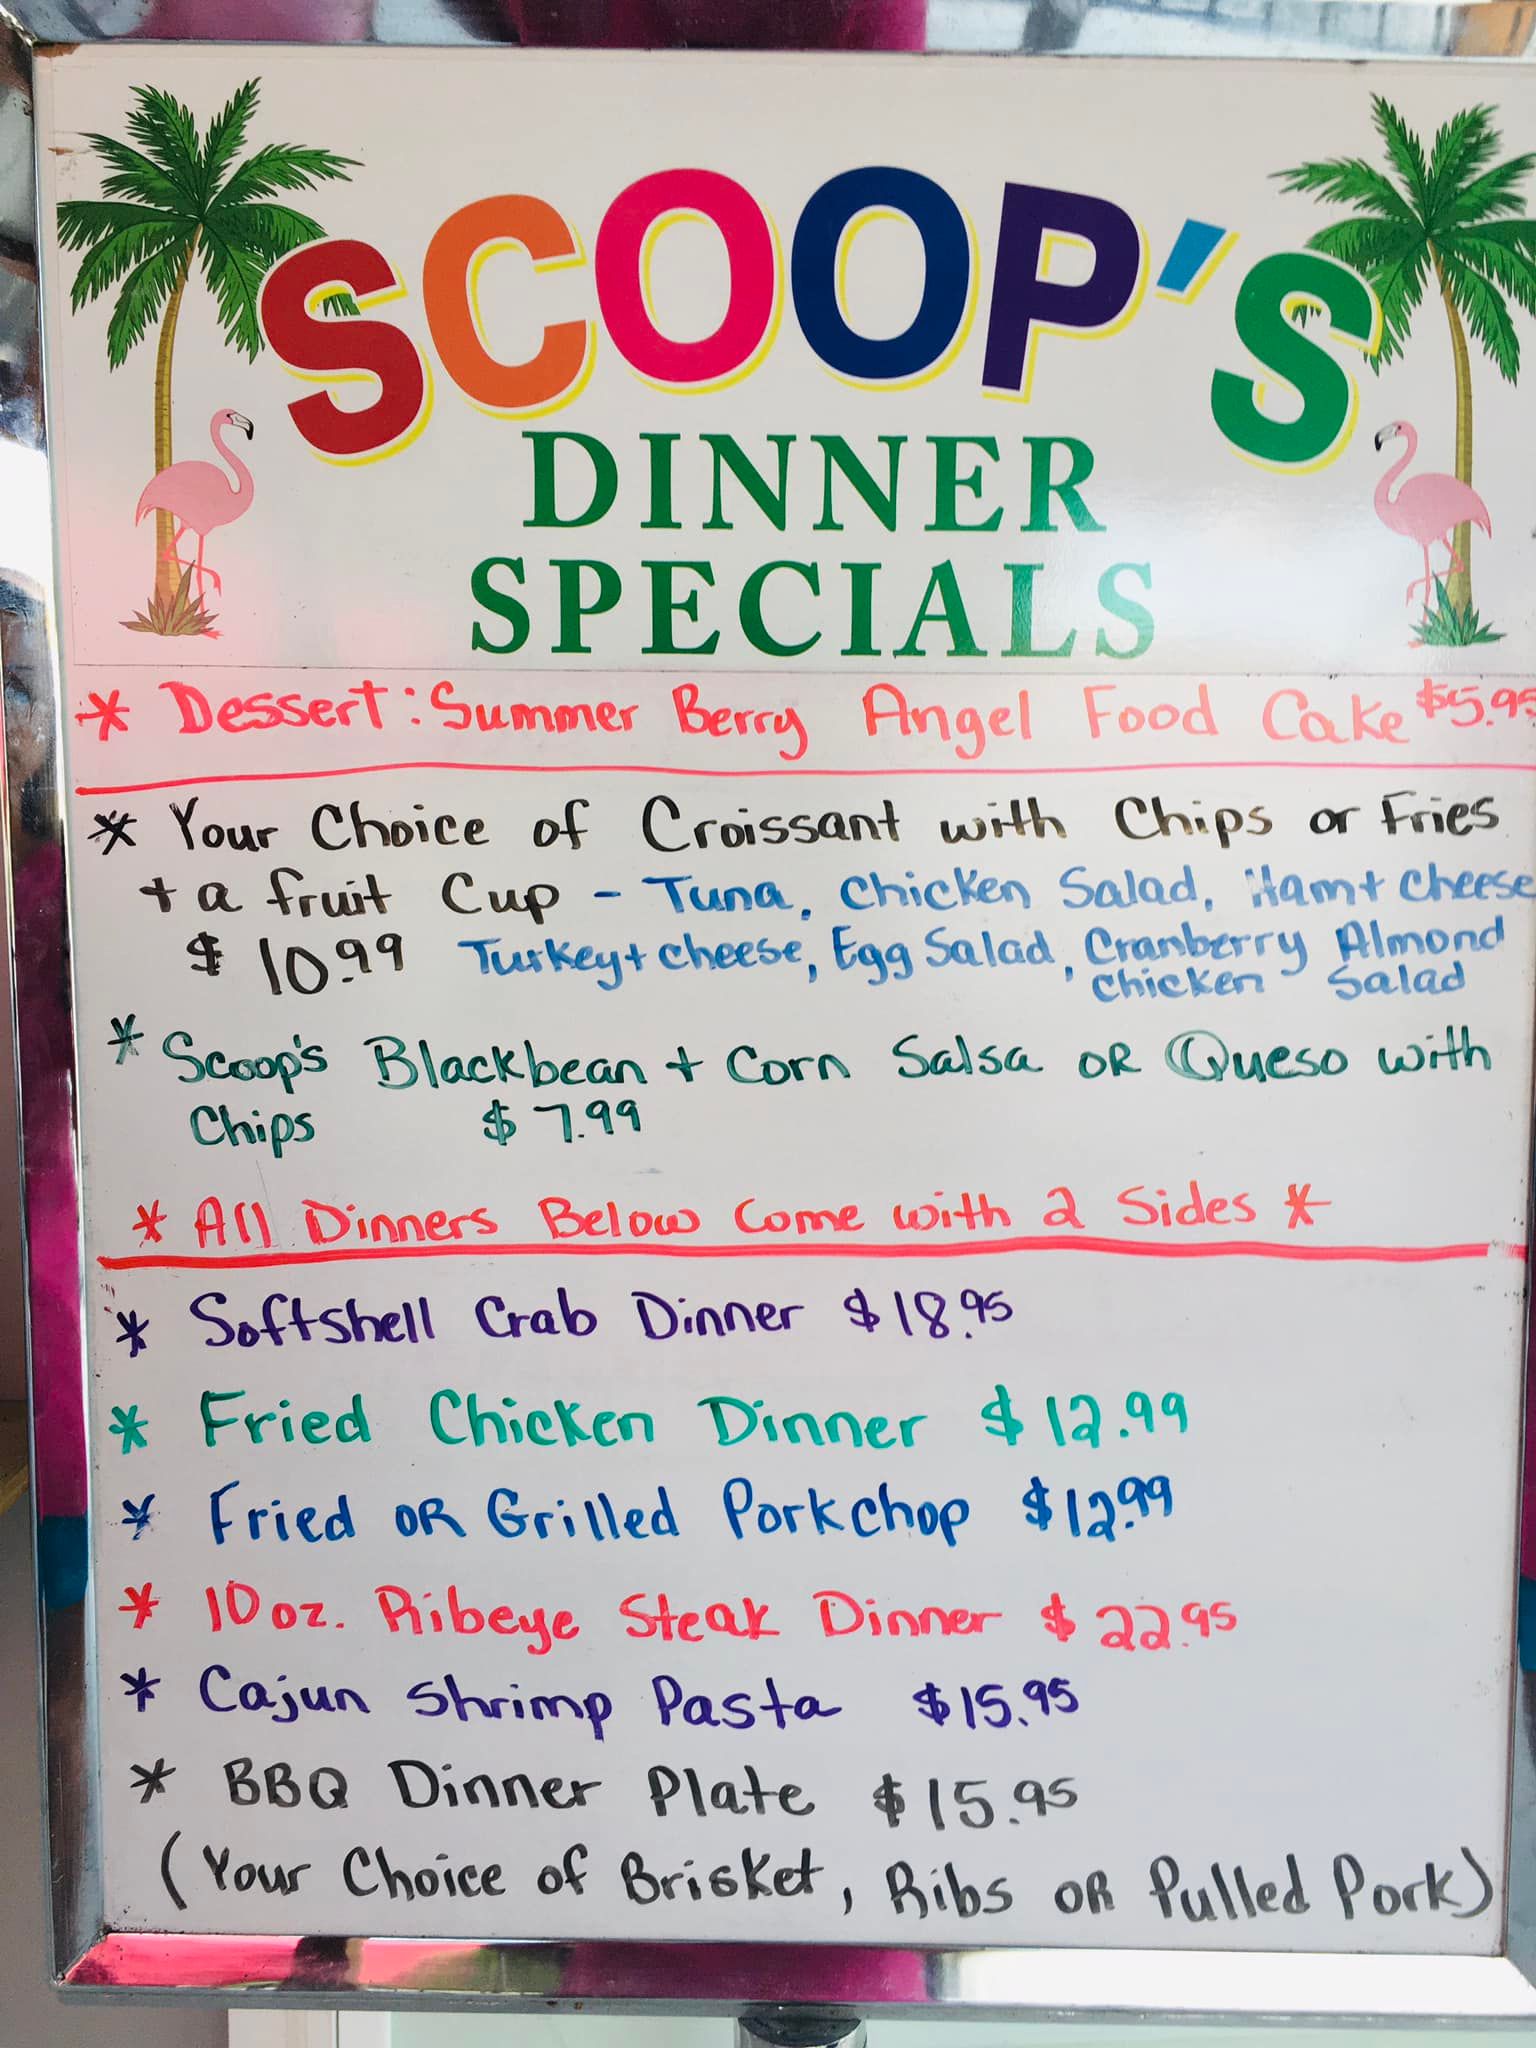 SCOOP'S
DINNER
SPECIALS
* Dessert: Summer Berry Angel Food Cake $5.95
* Your Choice of Croissant with Chips or Fries
+ a fruit Cup - Tuna, Chicken Salad, Ham + Cheese
$ 10.99 Turkey + Cheese, Egg Salad, Cranberry Almond
Chicken Salad
* Scoop's Blackbean + Corn Salsa OR Queso with
Chips $ 7.99
* All Dinners Below Come with 2 Sides *
* Softshell Crab Dinner $18.95
* Fried Chicken Dinner $12.99
* Fried OR Grilled Porkchop $12.99
* 10 oz. Ribeye Steak Dinner $22.95
* Cajun Shrimp Pasta $15.95
* BBQ Dinner Plate $15.95
(Your Choice of Brisket, Ribs OR Pulled Pork)